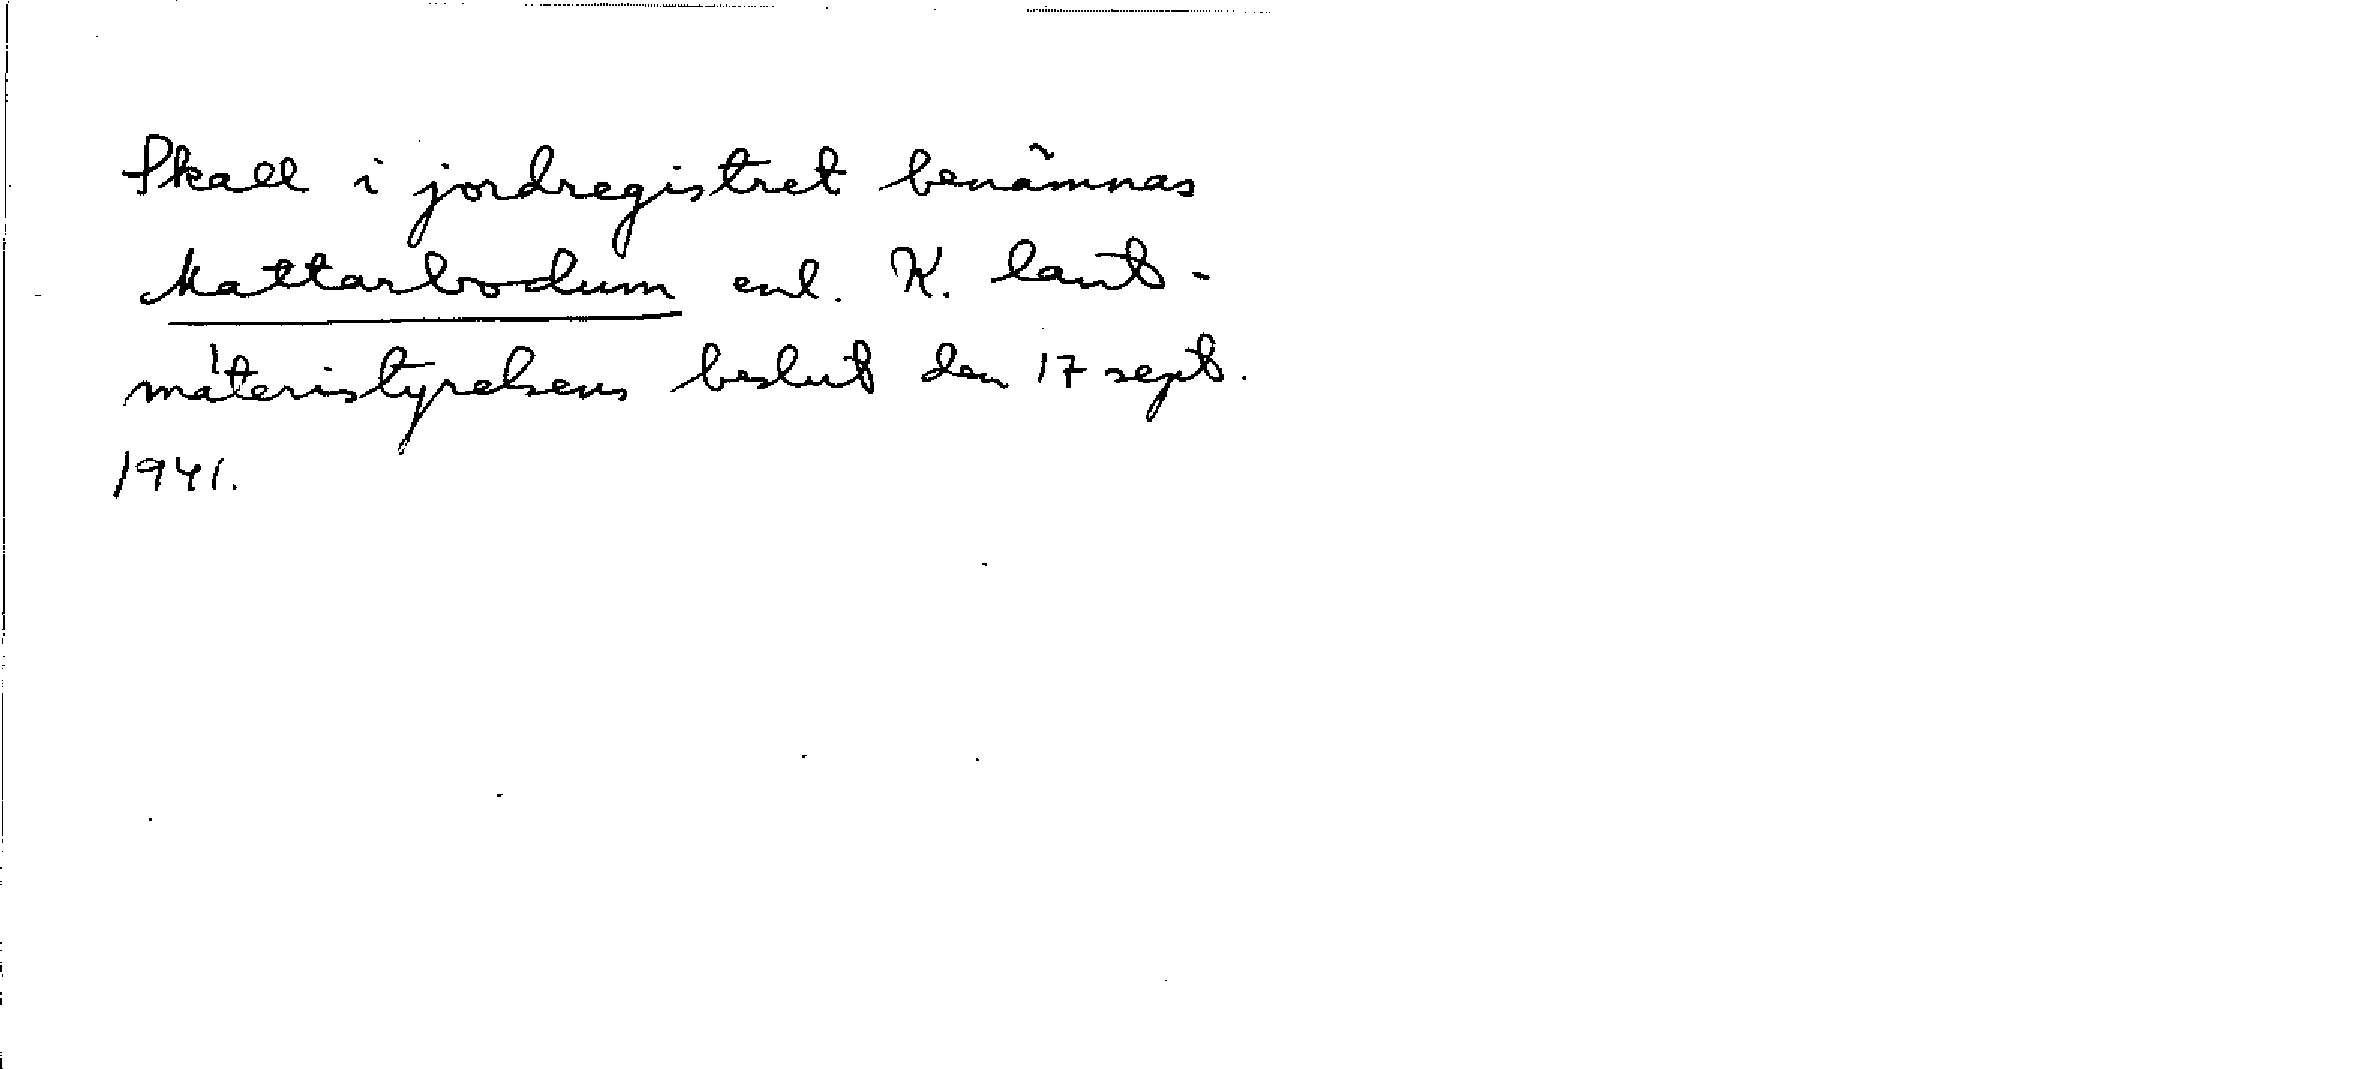 Skall i jordregistret benämnas
Mattarbodum enl. K. lant-
mäteristyrelsens beslut den 17 sept.
1941.